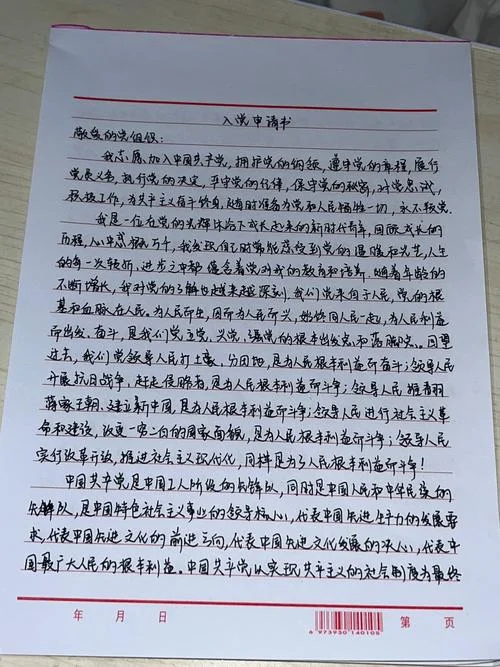 入党申请书
敬爱的党组织：
我志愿加入中国共产党，拥护党的纲领，遵守党的章程，履行
党员义务，执行党的决定，严守党的纪律，保守党的秘密，对党忠诚，
积极工作，为共产主义奋斗终身，随时准备为党和人民牺牲一切，永不叛党。
我是一位在党的光辉沐浴下成长起来的新时代青年，回顾成长的
历程，心中感慨万千，我发现自己时常能感受到党的温暖和关怀，人生
的每一次转折、进步之中都蕴含着党对我的教育和培养。随着年龄的
不断增长，我对党的了解也越来越深刻。我们党来自于人民，党的根
基和血脉在人民。为人民而生，因人民而兴，始终同人民一起，为人民利益
而出发、奋斗，是我们党立党、兴党、强党的根本出发点和落脚点。回望
过去，我们党领导人民打土豪、分田地，是为人民根本利益而奋斗；领导人民
开展抗日战争，赶走侵略者，是为人民根本利益而斗争；领导人民推翻
蒋家王朝、建立新中国，是为人民根本利益而斗争；领导人民进行社会主义革
命和建设，改变一穷二白的国家面貌，是为人民根本利益而斗争；领导人民
实行改革开放，推进社会主义现代化，同样是为了人民根本利益而斗争！
中国共产党是中国工人阶级的先锋队，同时是中国人民和中华民族的
先锋队，是中国特色社会主义事业的领导核心，代表中国先进生产力的发展要
求，代表中国先进文化的前进方向，代表中国先进文化发展的决心，代表中
国最广大人民的根本利益。中国共产党以实现共产主义的社会制度为最终
年 月 日 第 页
6 973930 140105